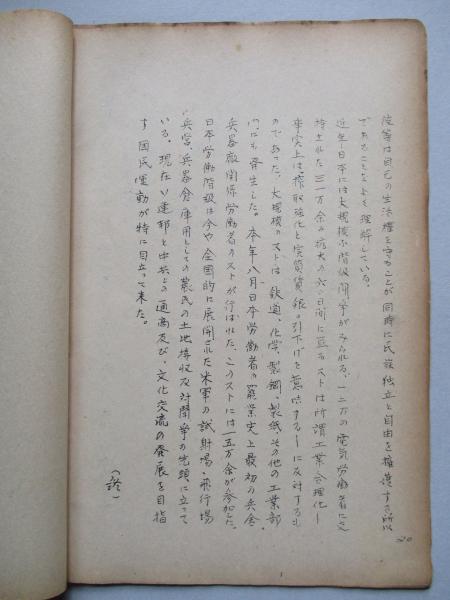 彼等は自己の生活権を守ることが同時に民族独立と自由を擁護する所以
であることをよく理解している。
近年日本には大規模な階級闘争がみられる、一二万の電気労働者に支
持された三一万余の炭夫の六〇日間に亘るストは所謂工業合理化ー
事実上は搾取強化と実質賃銀の引下げを意味するーに反対するも
のであった。大規模のストは、鉄道、化学、製鋼、製紙その他の工業部
門にも発生した。本年八月日本労働者の罷業史上最初の兵舎、
兵器廠関係労働者のストが行はれた、このストには一五万余が参加した。
日本労働階級は今や全国的に展開された米軍の試射場・飛行場
、兵営、兵器倉庫用としての農民の土地接収反対闘争の先頭に立って
いる。現在ソ連邦と中共との通商及び、文化交流の発展を目指
す国民運動が特に目立って来た。
(終)
20